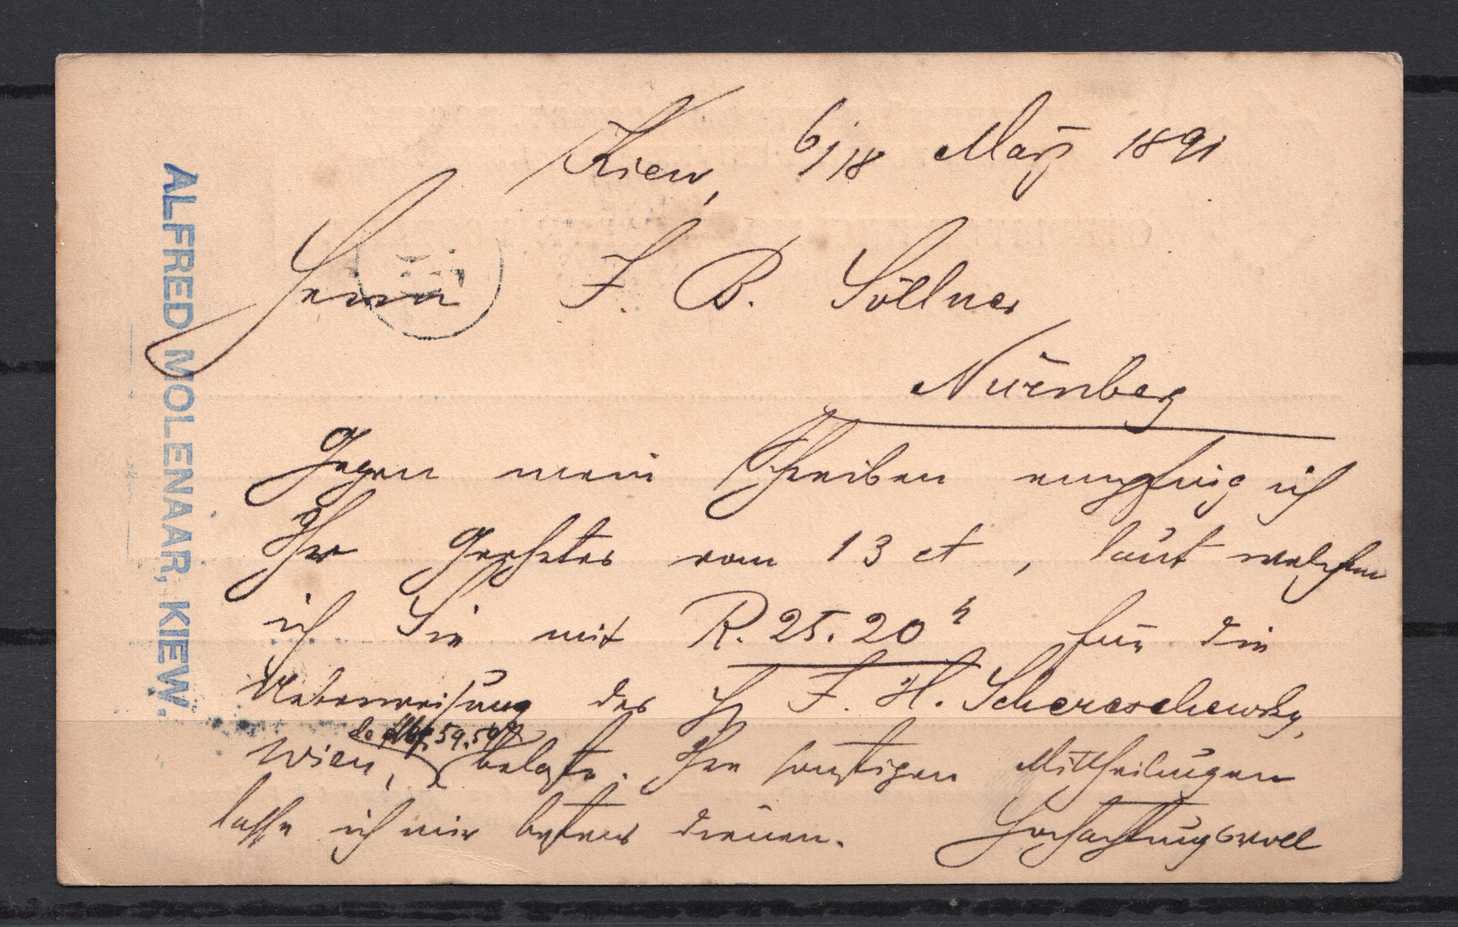 Kiew, 6/18 März 1891
Herrn J. B. Söllner
Nürnberg
Gegen mein Schreiben empfing ich
Ihr Geehrtes vom 13 ct, laut welchem
ich Sie mit R. 25.20 für die
Ueberweisung des H J. H. Schereschewsky,
59.50
Wien, belaste. Ihre sonstigen Mittheilungen
lasse ich mir bestens dienen. Hochachtungsvoll
ALFRED MOLENAAR, KIEW.